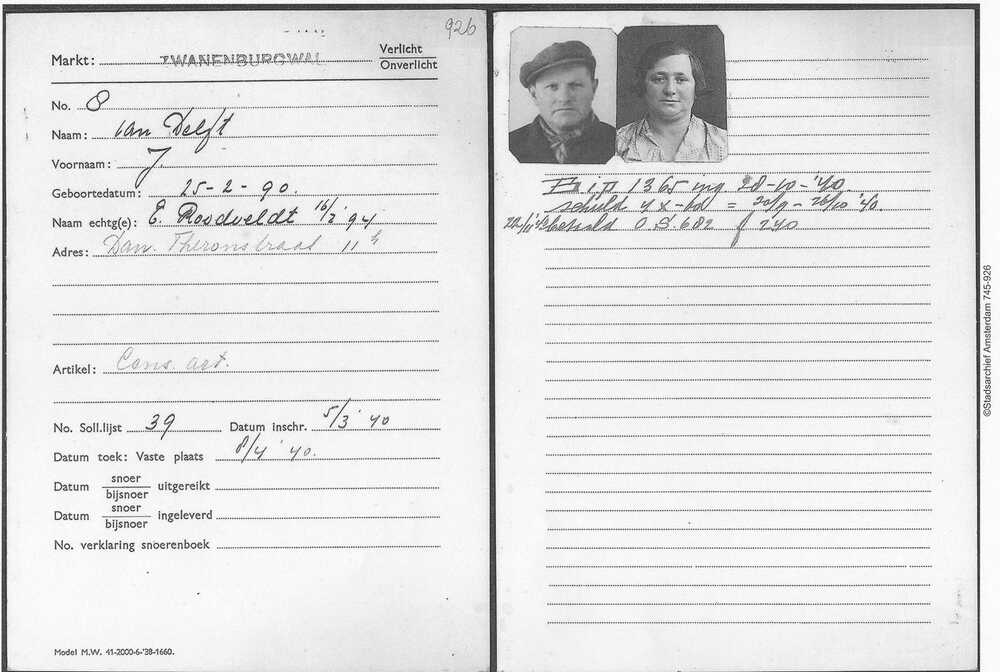 926
Markt: ZWANENBURGWAL Verlicht
Onverlicht
No. 8
Naam: van Delft
Voornaam: J.
Geboortedatum: 25-2-90.
Naam echtg(e): E. Roodveldt 16/3 '94
Adres: Dan. Theronstraat 11 h
Artikel: Cons. art.
No. Soll.lijst 39 Datum inschr. 5/3 '40
Datum toek: Vaste plaats 8/4 '40.
Datum snoer
bijsnoer uitgereikt
Datum snoer
bijsnoer ingeleverd
No. verklaring snoerenboek
Model M.W. 41-2000-6-'38-1660.
1365 ing 28-10-'40.
schuld 4 x = 30/9 - 26/10 '40.
betaald O.S. 682 f 240
©Stadsarchief Amsterdam 745-926